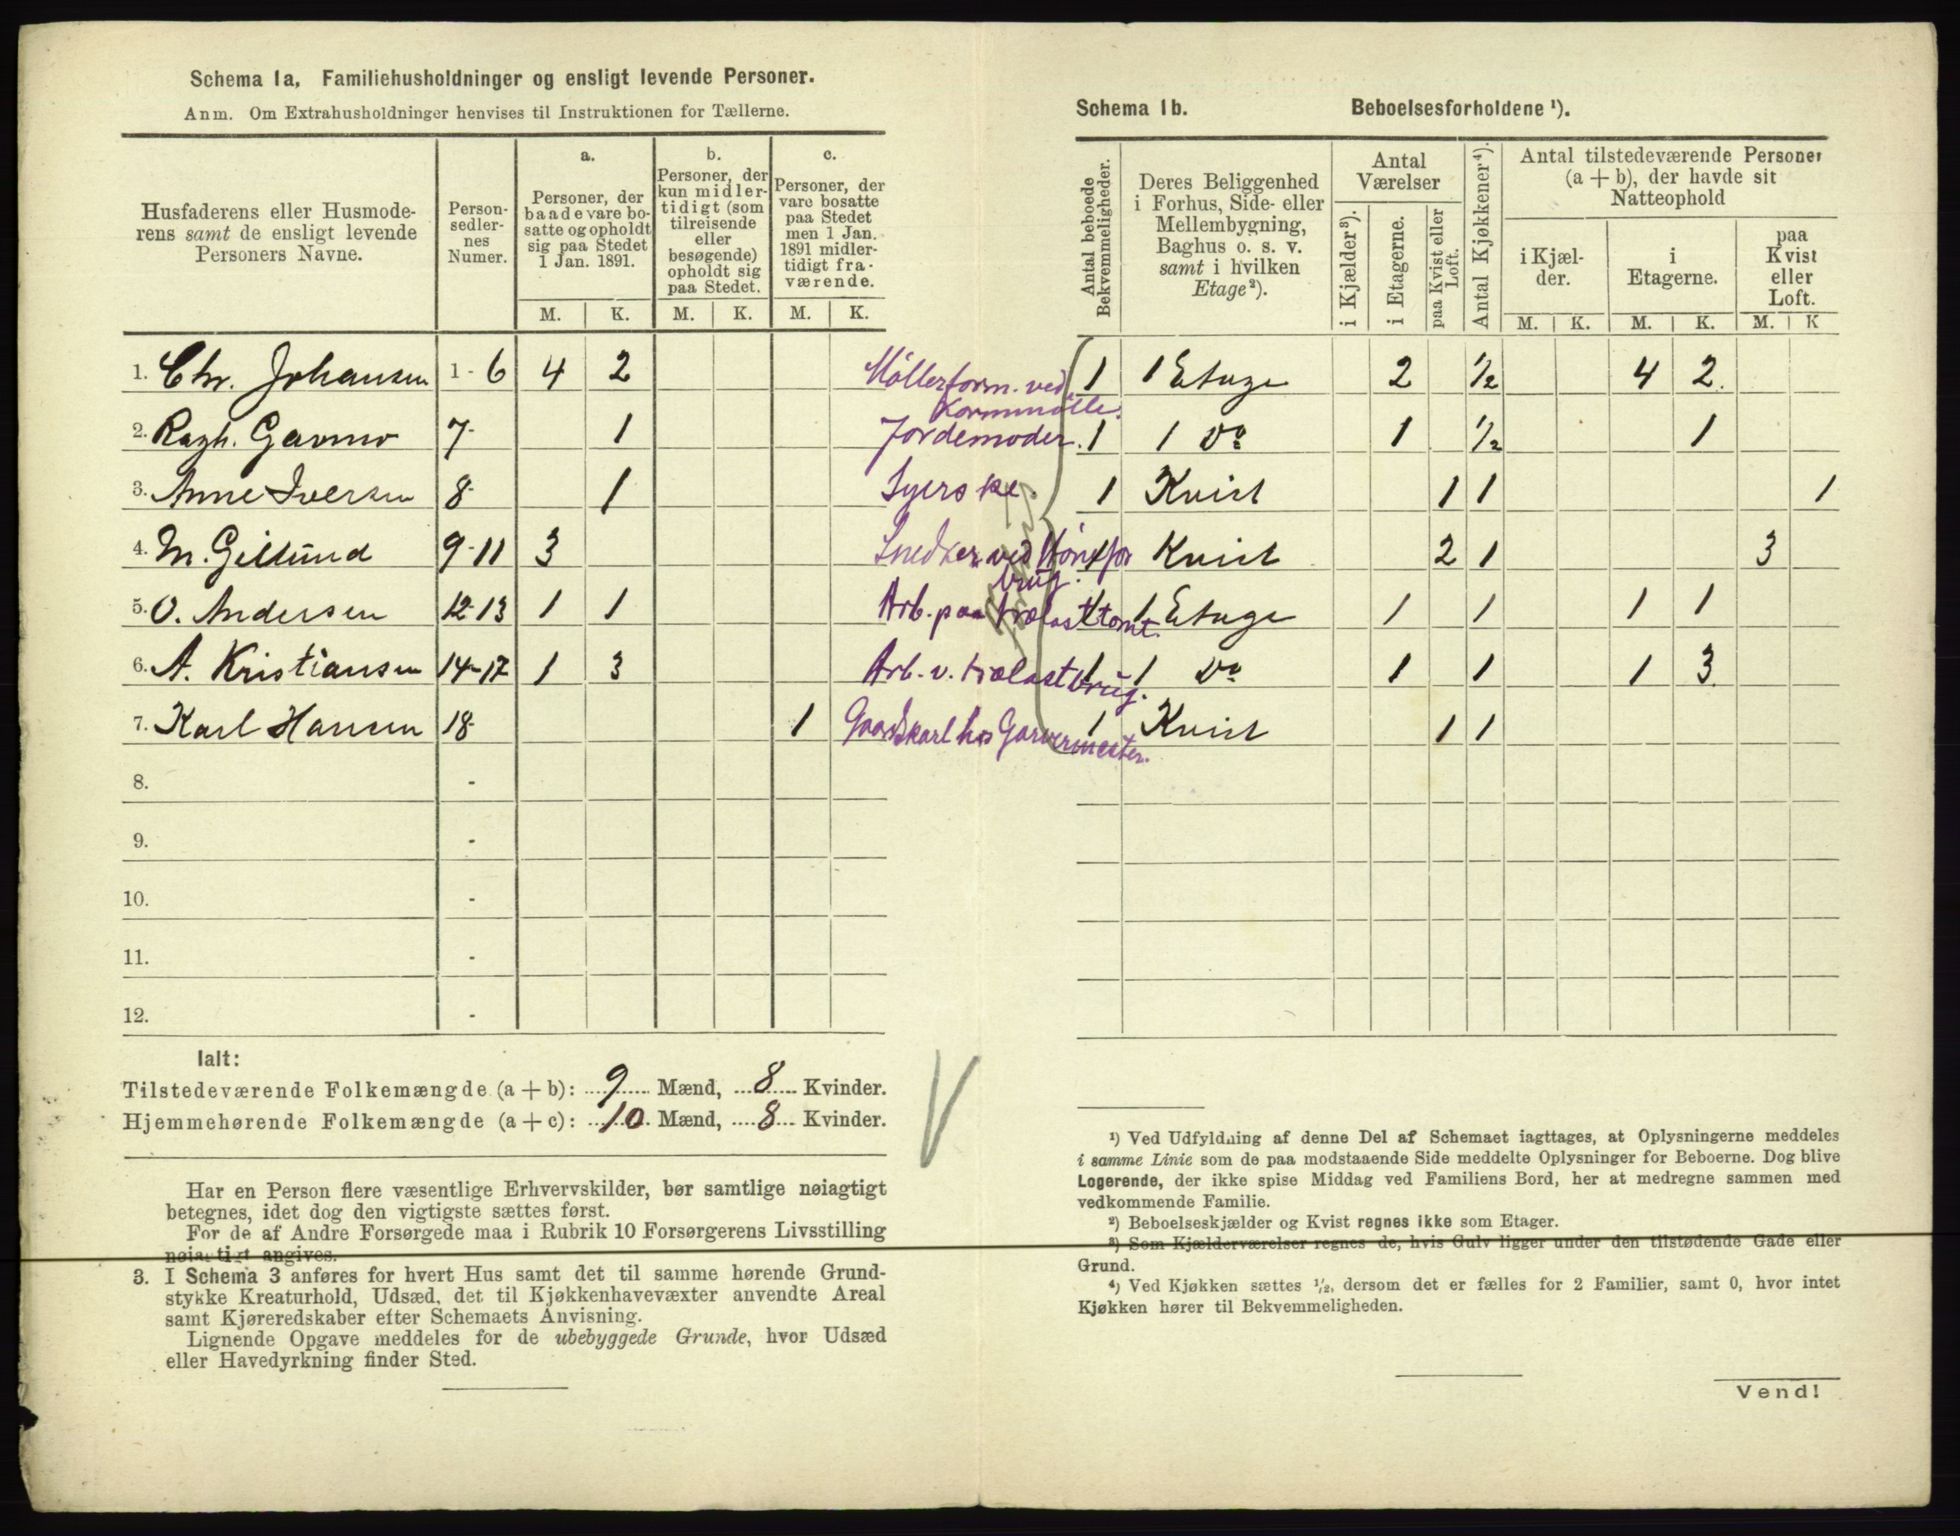 Schema 1a, Familiehusholdninger og ensligt levende Personer.
Anm. Om Extrahusholdninger henvises til Instruktionen for Tællerne.
Husfaderens eller Husmode-
rens samt de ensligt levende
Personers Navne.
Person-
sedler-
nes
Numer.
a.
Personer, der
baade vare bo-
satte og opholdt
sig paa Stedet
1 Jan. 1891.
b.
Personer, der
kun midler-
tidigt (som
tilreisende
eller
besøgende)
opholdt sig
paa Stedet.
c.
Personer, der
vare bosatte
paa Stedet
men 1 Jan.
1891 midler-
tidigt fra-
værende.
M. K. M. K. M. K.
1. Chr. Johansen 1-6 4 2
2. Ragh. Garmo 7- 1
3. Anne Iversen 8- 1
4. M. Gillund 9-11 3
5. O. Andersen 12-13 1 1
6. A. Kristiansen 14-17 1 3
7. Karl Hansen 18- 1
8. -
9. -
10. -
11. -
12. -
Ialt:
Tilstedeværende Folkemængde (a + b): 9 Mænd, 8 Kvinder.
Hjemmehørende Folkemængde (a + c): 10 Mænd, 8 Kvinder.
Har en Person flere væsentlige Erhvervskilder, bør samtlige nøiagtigt
betegnes, idet dog den vigtigste sættes først.
For de af Andre Forsørgede maa i Rubrik 10 Forsørgerens Livsstilling
nøiagtigt angives.
3. I Schema 3 anføres for hvert Hus samt det til samme hørende Grund-
stykke Kreaturhold, Udsæd, det til Kjøkkenhavevæxter anvendte Areal
samt Kjøreredskaber efter Schemaets Anvisning.
Lignende Opgave meddeles for de ubebyggede Grunde, hvor Udsæd
eller Havedyrkning finder Sted.
Møllerform. ved
Kornmølle.
Jordemoder.
Syerske.
Snedker ved
brug.
Arb. paa trælasttomt.
Arb. v. trælastbrug.
Gaardskarl hos Garvermester.
Schema 1b. Beboelsesforholdene ¹).
Antal beboede
Bekvemmeligheder.
Deres Beliggenhed
i Forhus, Side- eller
Mellembygning,
Baghus o. s. v.
samt i hvilken
Etage²).
Antal
Værelser
i Kjælder³).
i Etagerne.
paa Kvist eller
Loft.
Antal Kjøkkener⁴).
Antal tilstedeværende Personer
(a + b), der havde sit
Natteophold
i Kjæl-
der.
i
Etagerne.
paa
Kvist
eller
Loft.
M. K. M. K. M. K
1 1 Etage 2 ½ 4 2.
1 1 Do 1 ½ 1
1 Kvist 1 1 1
1 Kvist 2 1 3
1 1 Etage 1 1 1 1
1 1 Do 1 1 1 3
1 Kvist 1 1
¹) Ved Udfyldning af denne Del af Schemaet iagttages, at Oplysningerne meddeles
i samme Linie som de paa modstaaende Side meddelte Oplysninger for Beboerne. Dog blive
Logerende, der ikke spise Middag ved Familiens Bord, her at medregne sammen med
vedkommende Familie.
²) Beboelseskjælder og Kvist regnes ikke som Etager.
³) Som Kjælderværelser regnes de, hvis Gulv ligger under den tilstødende Gade eller
Grund.
⁴) Ved Kjøkken sættes ¹/₂, dersom det er fælles for 2 Familier, samt 0, hvor intet
Kjøkken hører til Bekvemmeligheden.
Vend!